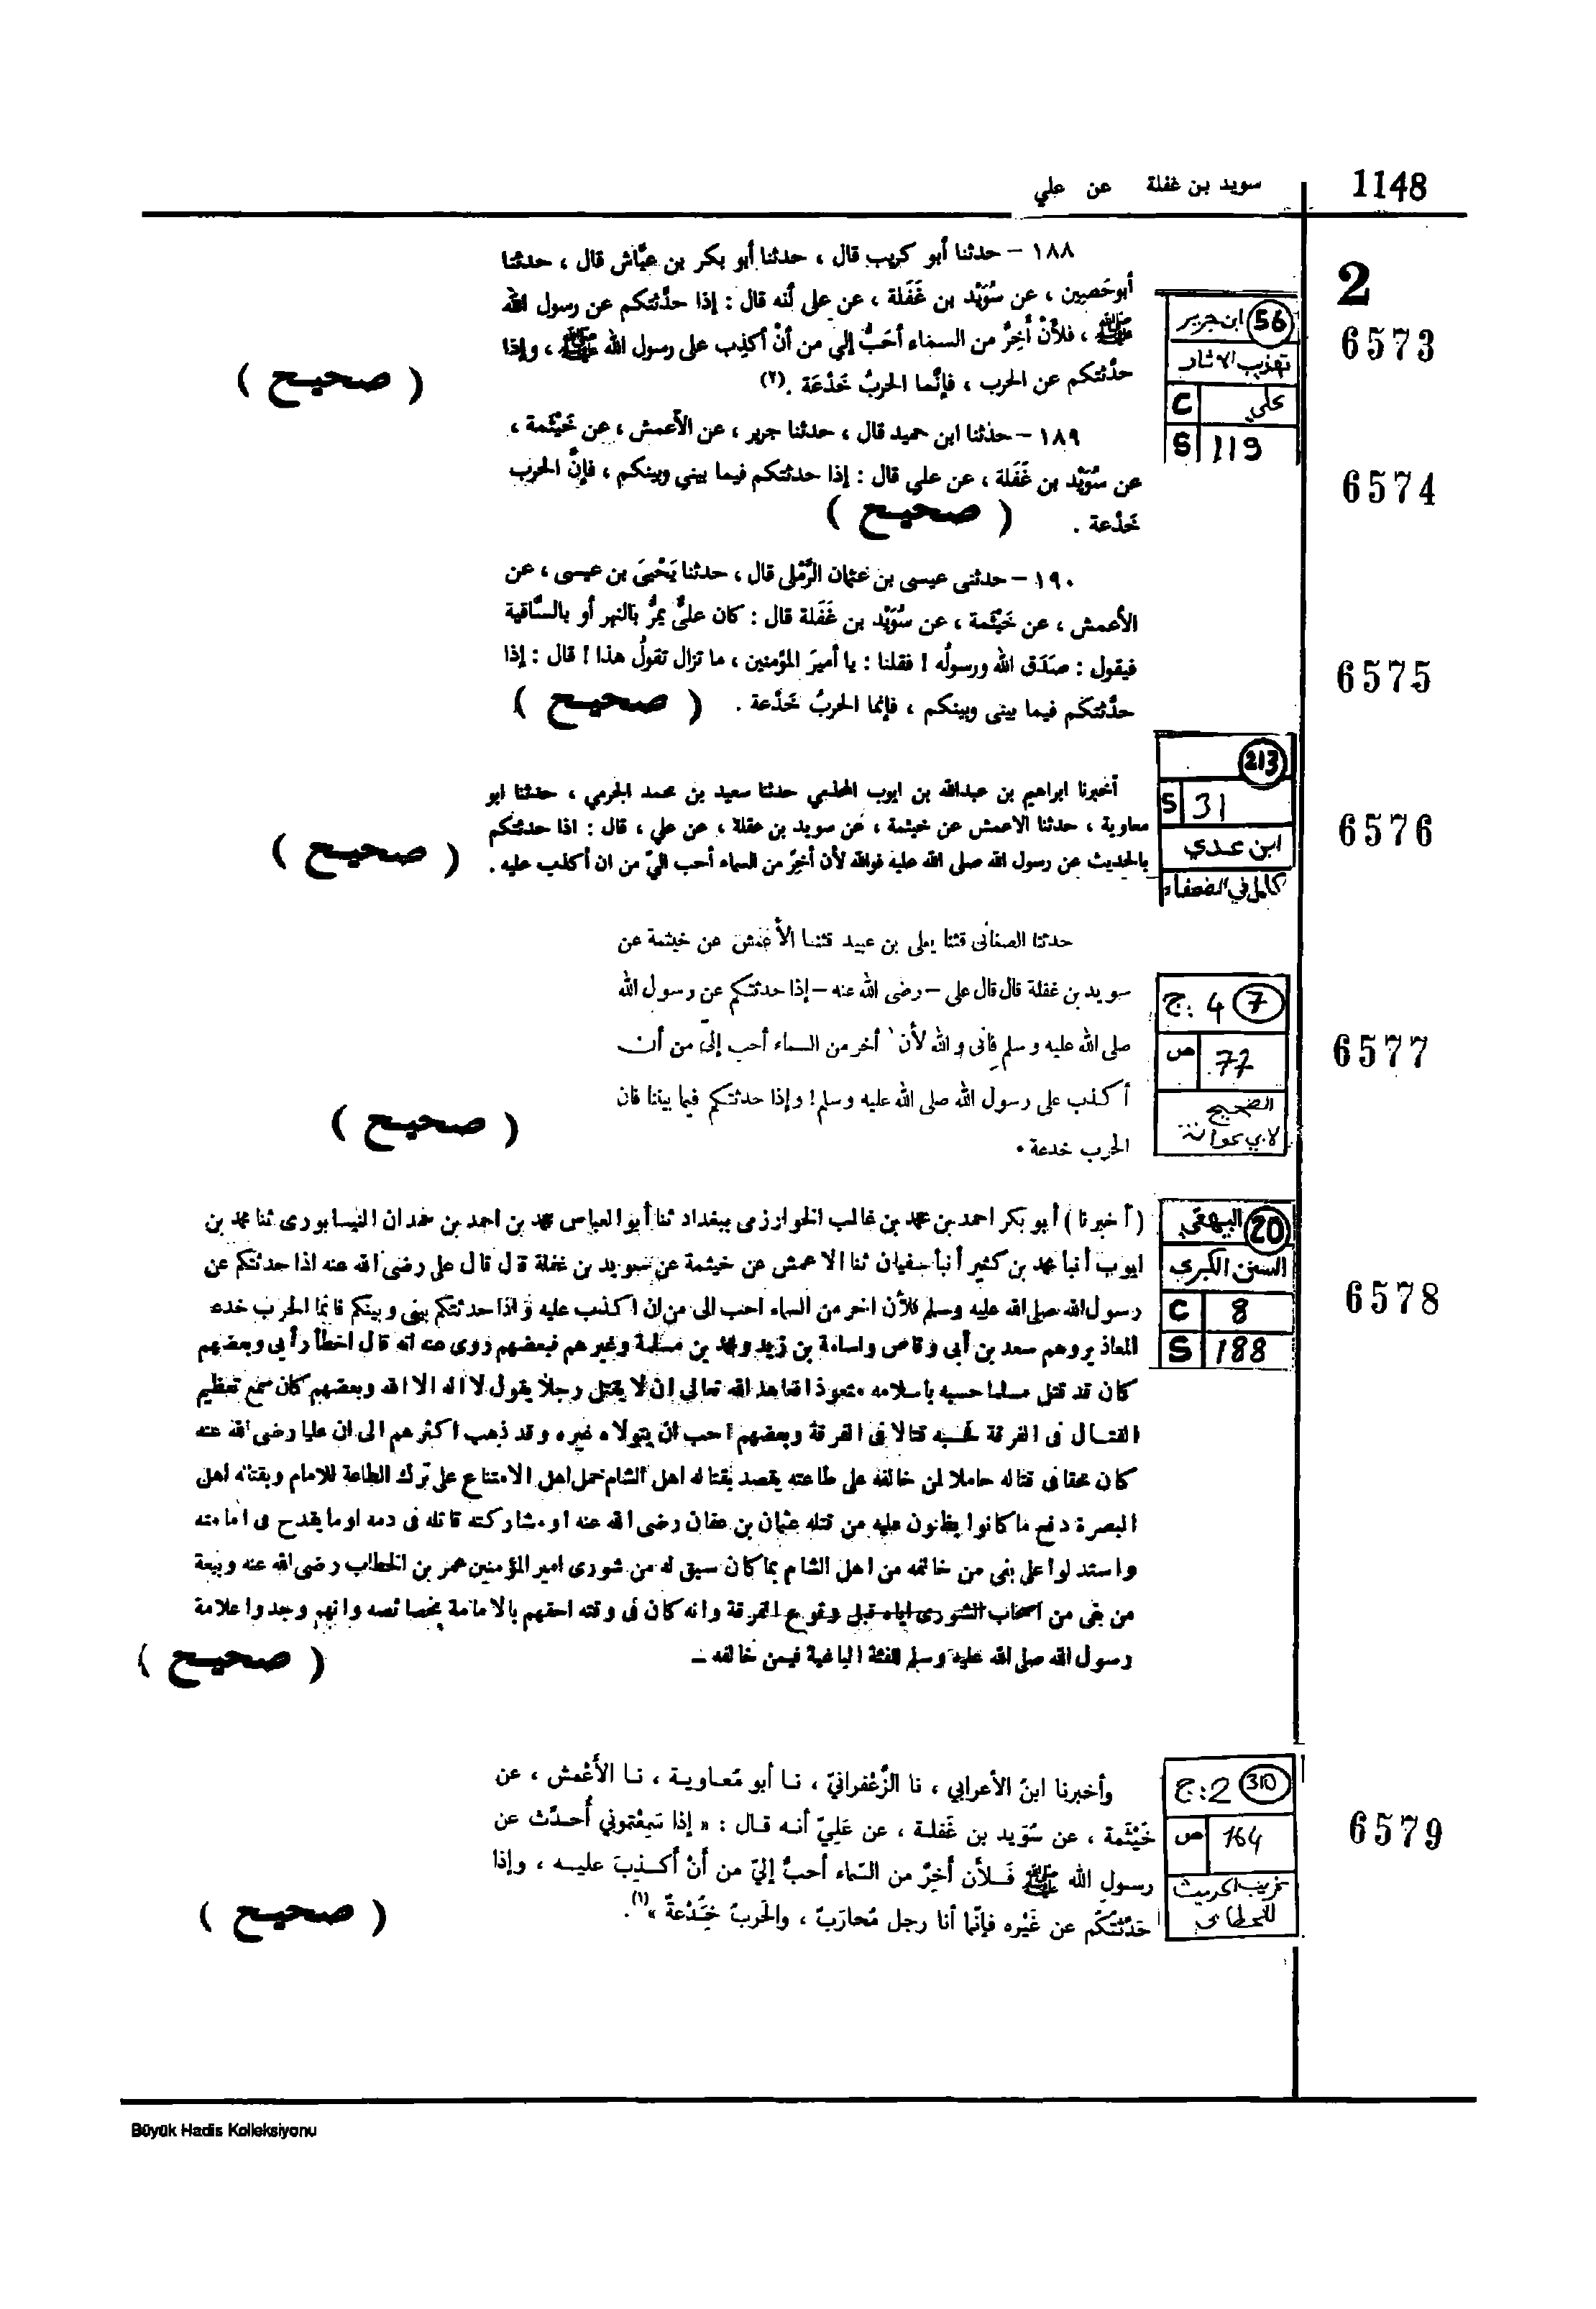 سويد بن غفلة عن علي
1148
2
١٨٨ – حدثنا أبو كريب قال ، حدثنا أبو بكر بن عيَّاش قال ، حدثنا
أبو حَصِين ، عن سُوَيْد بن غَفَلة ، عن على أنه قال : إذا حدَّثتكم عن رسول الله
ﷺ ، فلأَنْ أَخِرَّ من السماء أحَبُّ إلي من أنْ أكذِب على رسول الله ﷺ ، وإذا
حدَّثتكم عن الحرب ، فإنَّما الحربُ خَدْعَة . (٢)
( صحيح )
6573
56 ابن جرير
تهذيب الاثار
C علي
S 119
١٨٩ – حدثنا ابن حميد قال ، حدثنا جرير ، عن الأعمش ، عن خَيْثَمة ،
عن سُوَيْد بن غَفَلة ، عن علي قال : إذا حدثتكم فيما بيني وبينكم ، فإنَّ الحرب
خَدْعة .
( صحيح )
6574
١٩٠ – حدثنى عيسى بن عثمان الرَّمْلى قال ، حدثنا يَحْيىَ بن عيسى ، عن
الأعمش ، عن خَيْثَمة ، عن سُوَيْد بن غَفَلة قال : كان علىٌّ يمرُّ بالنهر أو بالسَّاقية
فيقول : صَدَق الله ورسولُه ! فقلنا : يا أميرَ المؤمنين ، ما تزال تقولُ هذا ! قال : إذا
حدَّثتكم فيما بينى وبينكم ، فإنما الحربُ خَدْعة .
( صحيح )
6575
أخبرنا ابراهيم بن عبدالله بن ايوب المخرمي حدثنا سعيد بن محمد الجرمي ، حدثنا ابو
معاوية ، حدثنا الاعمش عن خيثمة ، عن سويد بن عقلة ، عن علي ، قال : اذا حدثتكم
بالحديث عن رسول الله صلى الله عليه فوالله لأن أخِرّ من السماء أحب اليّ من ان أكذب عليه .
( صحيح )
6576
213
S 31
ابن عدي
كامل في الضعفاء
حدثنا الصغانى قثنا يعلى بن عبيد قثنا الأعمش عن خيثمة عن
سويد بن غفلة قال قال على – رضى الله عنه – إذا حدثتكم عن رسول الله
صلى الله عليه وسلم فإنى والله لأن أخر من السماء أحب إلىّ من أن
أكذب على رسول الله صلى الله عليه وسلم! وإذا حدثتكم فيما بيننا فان
الحرب خدعة .
( صحيح )
6577
7 ج: 4
ص 77
الصحيح
لابي عوانة
( أخبرنا ) أبو بكر احمد بن محمد بن غالب الخوارزمى ببغداد ثنا أبو العباس محمد بن احمد بن حمدان النيسابورى ثنا محمد بن
ايوب أنبأ محمد بن كثير أنبأ سفيان ثنا الاعمش عن خيثمة عن سويد بن غفلة قال قال على رضى الله عنه اذا حدثتكم عن
رسول الله صلى الله عليه وسلم فلأن اخر من السماء احب الى من ان اكذب عليه واذا حدثتكم بينى وبينكم فانما الحرب خدعة
المعاذير وهم سعد بن أبى وقاص واسامة بن زيد ومحمد بن مسلمة وغيرهم فبعضهم روى عنه انه قال اخطأ رأيى وبعضهم
كان قد قتل مسلما حسبه باسلامه متعوذا فعاهد الله تعالى ان لا يقتل رجلا يقول لا اله الا الله وبعضهم كان سمع تعظيم
القتال فى الفرقة فحسبه قتالا فى الفرقة وبعضهم احب ان يتولاه غيره وقد ذهب اكثرهم الى ان عليا رضى الله عنه
كان محقا فى قتاله حاملا لمن خالفه على طاعته يقصد بقتاله اهل الشام حمل اهل الامتناع على ترك الطاعة للامام وبقتاله اهل
البصرة دفع ما كانوا يظنون عليه من قتله عثمان بن عفان رضى الله عنه او مشاركته قاتله فى دمه او ما يقدح فى امامته
واستدلوا على بغى من خالفه من اهل الشام بما كان سبق له من شورى امير المؤمنين عمر بن الخطاب رضى الله عنه وبيعة
من بقى من اصحاب الشورى اياه قبل وقوع الفرقة وانه كان فى وقته احقهم بالامامة بخصائصه وانهم وجدوا علامة
رسول الله صلى الله عليه وسلم للفئة الباغية فيمن خالفه –
( صحيح )
6578
20 البيهقي
السنن الكبرى
C 8
S 188
وأخبرنا ابنُ الأعرابي ، نا الزَّعْفرانيّ ، نـا أبو مُعـاويـة ، نـا الأَعْمش ، عن
خَيْثَمة ، عن سُوَيد بن غَفلـة ، عن عَلِيّ أنـه قـال : « إذا سَمِعْتموني أُحـدِّث عن
رسول الله ﷺ فَـلأَن أَخِرَّ من السّماء أحبُّ إليّ من أَنْ أَكـذِبَ عليـه ، وإذا
حَدّثتُكُم عن غَيْره فإنّما أنا رجل مُحارَبٌ ، والحَربُ خَدْعةٌ »(١) .
( صحيح )
6579
310 ج: 2
ص 164
غريب الحديث
للخطابي
Büyük Hadis Kolleksiyonu